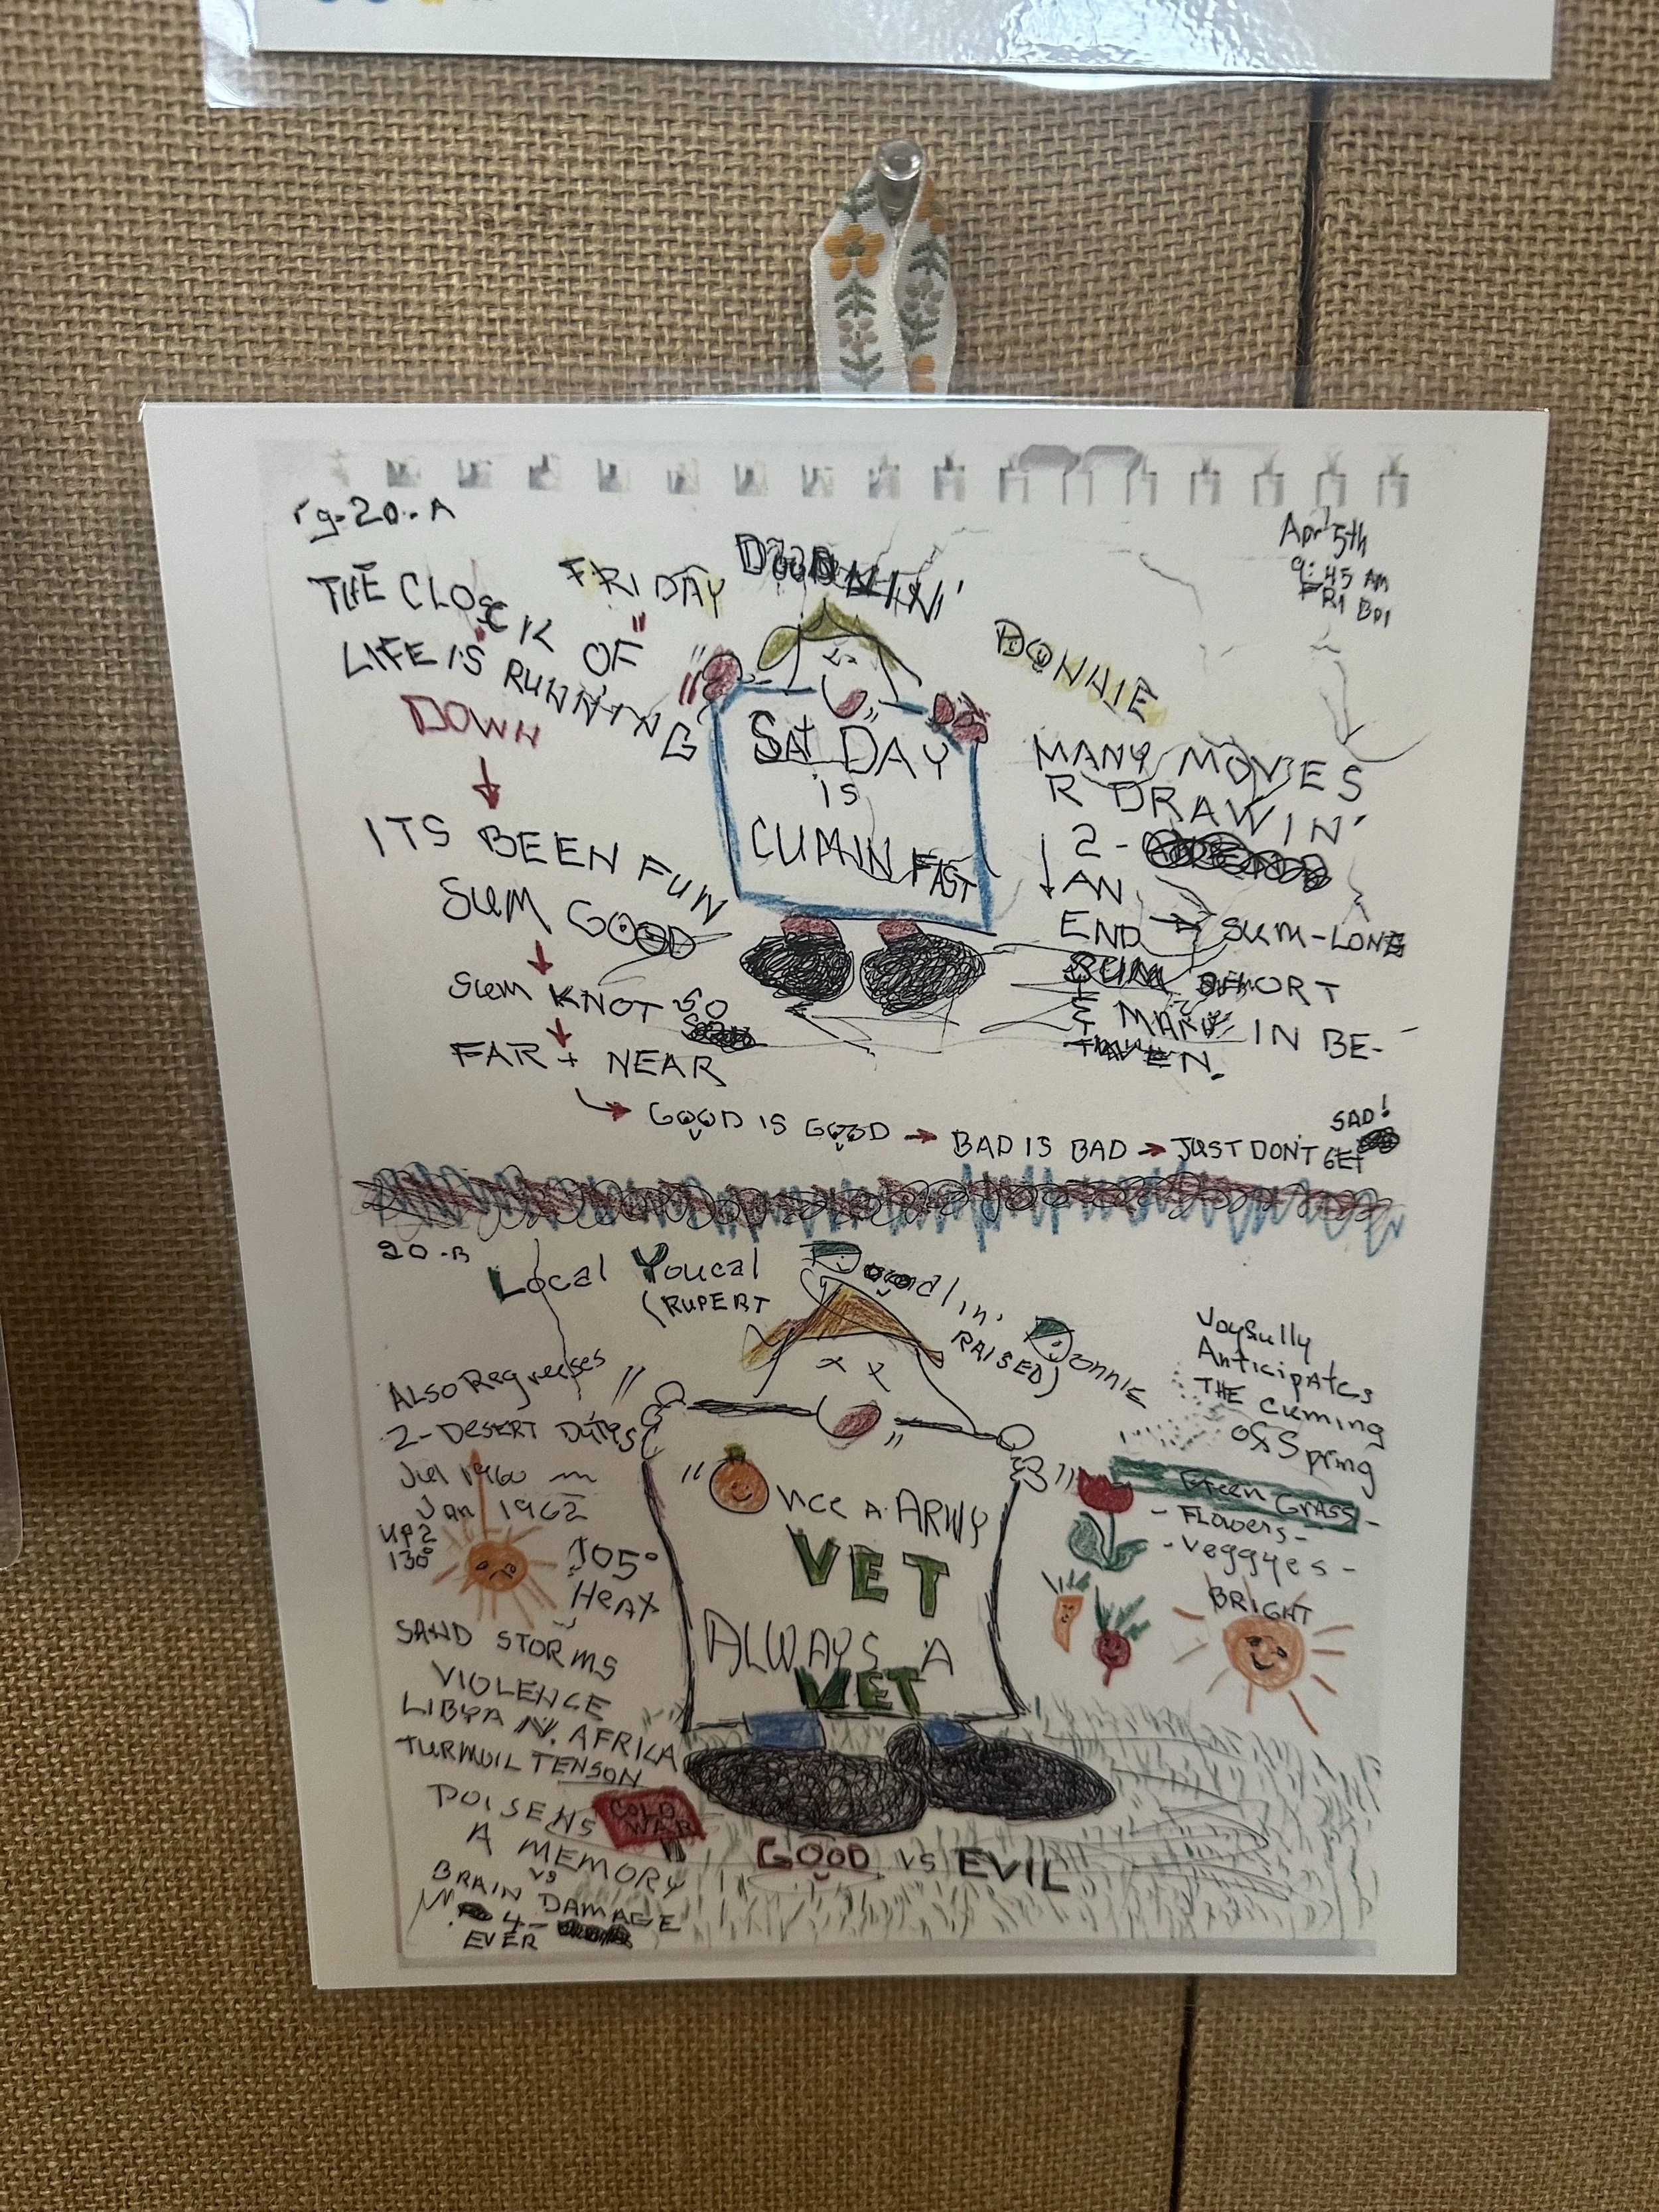 Pg-20-A
Apr 5th
9:45 AM
FRI
FRIDAY DOODLIN'
DONNIE
THE CLOCK OF
LIFE "IS" RUNNING
DOWN
ITS BEEN FUN
SUM GOOD
SUM KNOT SO
FAR + NEAR
SAT DAY
is
CUMIN FAST
MANY MOVIES
R DRAWIN'
2-
AN
END → SUM-LONG
SUM SHORT
& MANY IN BE-
TWEEN.
GOOD IS GOOD → BAD IS BAD → JUST DON'T GET
SAD!
20-B
Local Youcal Doodlin' Donnie
(RUPERT RAISED)
ALSO Regresses
2-DESERT Dutys
Jul 1960 —
Jan 1962
UP 2
130°
105°
HEAT
SAND STORMS
VIOLENCE
LIBYA N. AFRICA
TURMUIL TENSON
COLD
WAR
POISENS
A MEMORY
vs
BRAIN DAMAGE
4-
EVER
"Once A ARMY
VET
ALWAYS A
VET"
Joyfully
Anticipates
THE Cuming
of Spring
Green GRASS -
- Flowers -
- Veggyes -
BRIGHT
GOOD vs EVIL